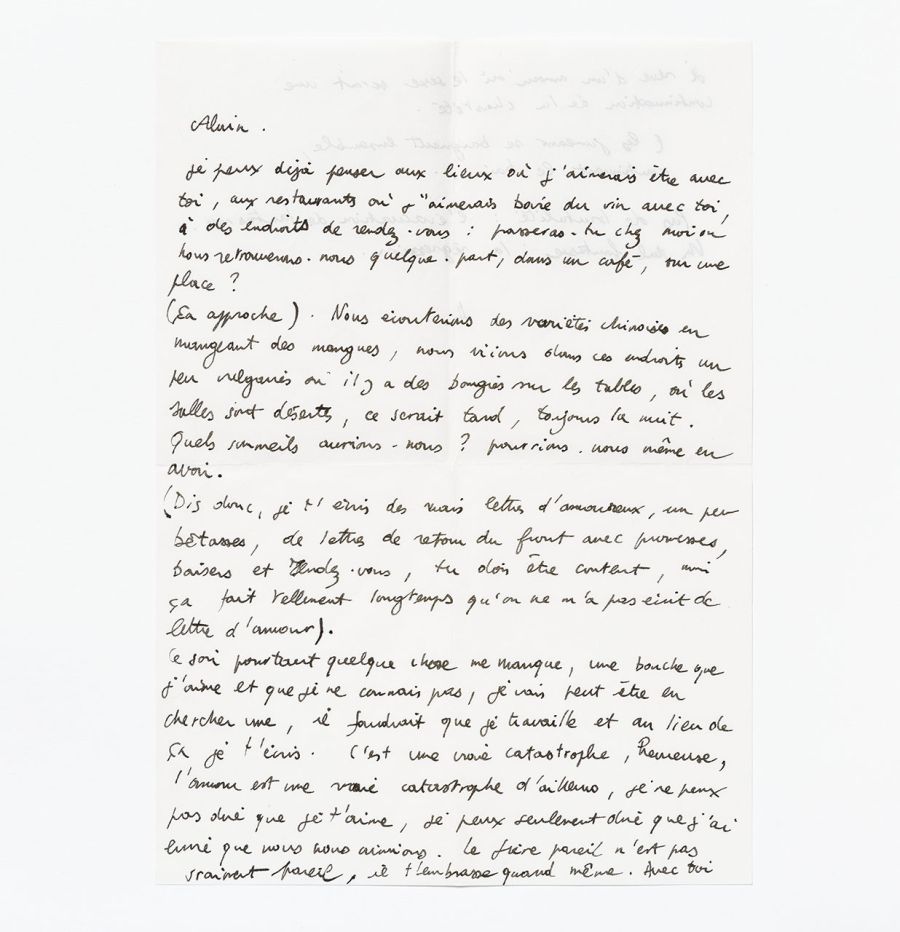 Alain.
je peux déjà penser aux lieux où j'aimerais être avec
toi, aux restaurants où j'aimerais boire du vin avec toi,
à des endroits de rendez-vous : passeras-tu chez moi ou
nous retrouverons-nous quelque-part, dans un café, sur une
place ?
(ça approche). Nous écouterions des variétés chinoises en
mangeant des mangues, nous irions dans ces endroits un
peu vulgaires où il y a des bougies sur les tables, où les
salles sont désertes, ce serait tard, toujours la nuit.
Quels sommeils aurions-nous ? pourrions-nous même en
avoir.
(Dis donc, je t'écris des vrais lettres d'amoureux, un peu
bêtasses, de lettres de retour du front avec promesses,
baisers et rendez-vous, tu dois être content,
ça fait tellement longtemps qu'on ne m'a pas écrit de
lettre d'amour).
Ce soir pourtant quelque chose me manque, une bouche que
j'aime et que je ne connais pas, je vais peut être en
chercher une, il faudrait que je travaille et au lieu de
ça je t'écris. C'est une vraie catastrophe, heureuse,
l'amour est une vraie catastrophe d'ailleurs, je ne peux
pas dire que je t'aime, je peux seulement dire que j'ai
envie que nous nous aimions. Le frère pareil n'est pas
vraiment pareil, il t'embrasse quand même. Avec toi